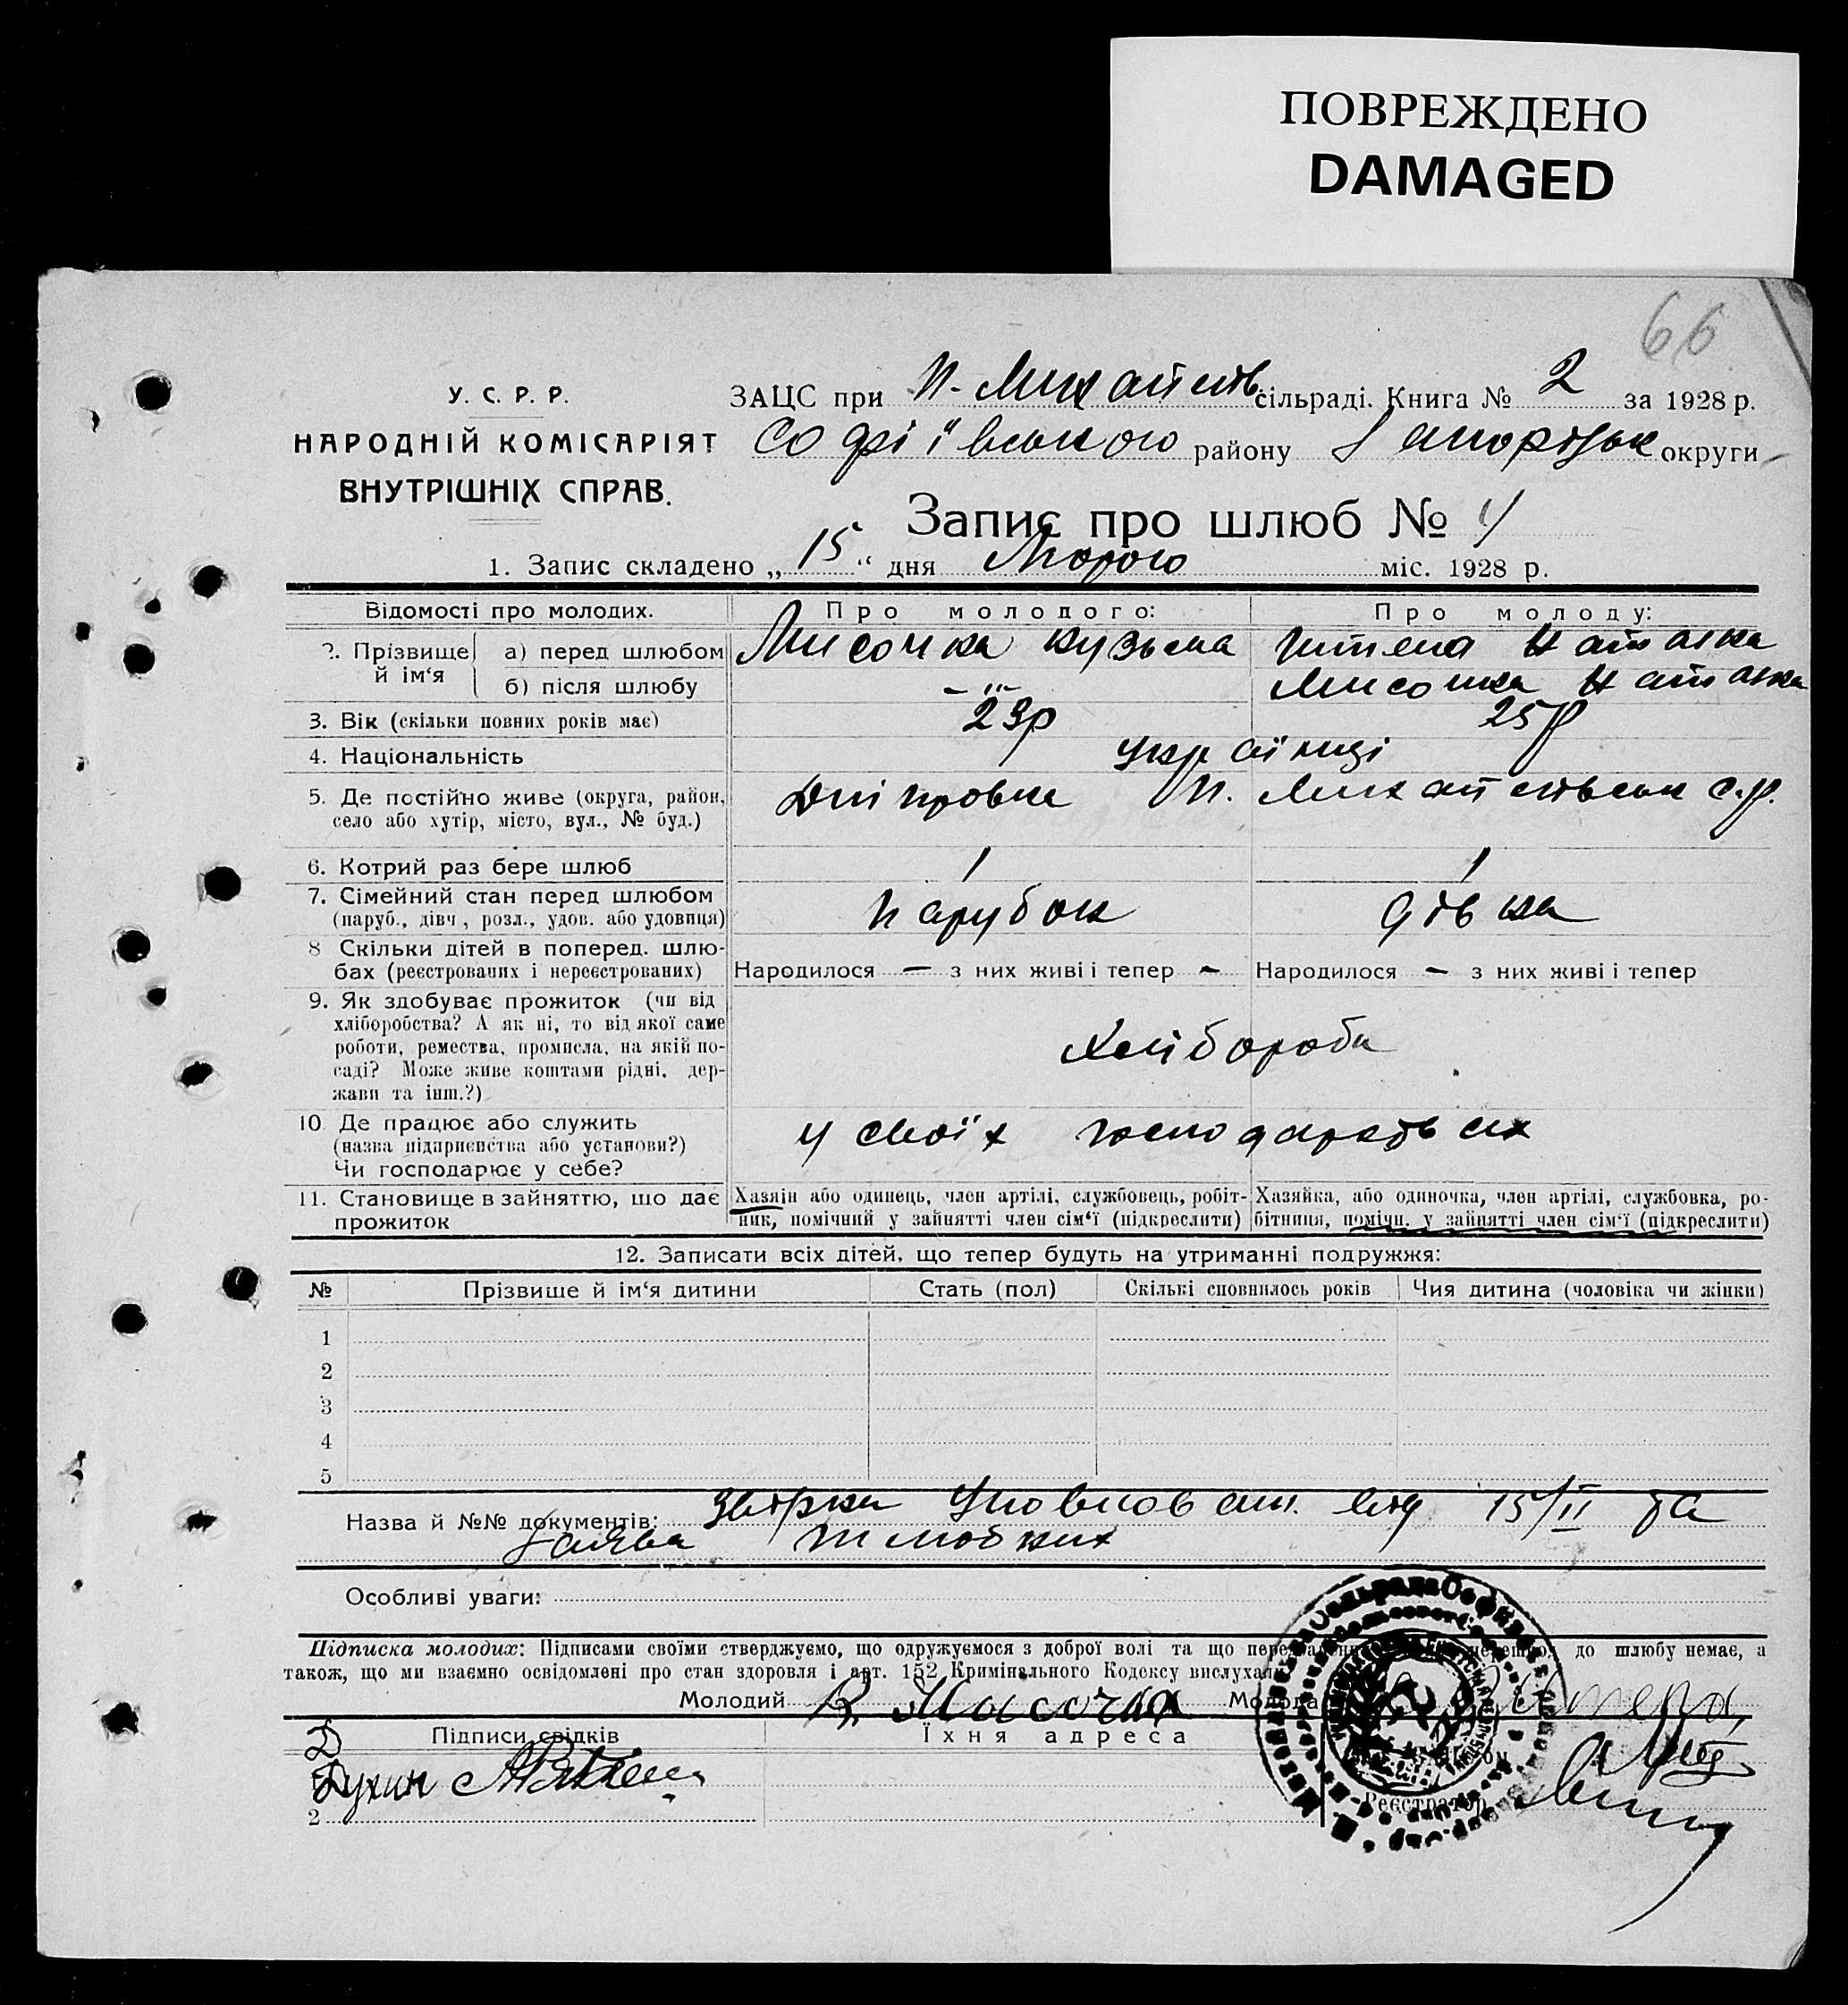 ПОВРЕЖДЕНО
DAMAGED
66
У. С. Р. Р.
НАРОДНІЙ КОМІСАРІЯТ
ВНУТРІШНІХ СПРАВ.
ЗАЦС при Н-Михайлів сільраді. Книга № 2 за 1928 р.
Софіївського району Запорізьк округи
Запис про шлюб № 4
1. Запис складено „ 15 “ дня Лютого міс. 1928 р.
Відомості про молодих. Про молодого: Про молоду:
2. Прізвище й ім‘я а) перед шлюбом Мисочка Кузьма Наталка
б) після шлюбу — „ — Мисочка Наталка
3. Вік (скільки повних років має) 23р 25р
4. Національність Українці
5. Де постійно живе (округа, район, село або хутір, місто, вул., № буд.) Дніпровка Н. Михайлівськ с.р.
6. Котрий раз бере шлюб 1 1
7. Сімейний стан перед шлюбом (паруб., дівч., розл., удов. або удовиця) парубок дівка
8 Скільки дітей в поперед. шлюбах (реєстрованих і нереєстрованих) Народилося — з них живі і тепер — Народилося — з них живі і тепер
9. Як здобуває прожиток (чи від
хліборобства? А як ні, то від якої саме
роботи, ремества, промисла, на якій по-
саді? Може живе коштами рідні, дер-
жави та інш.?)
Хлібороби
10 Де працює або служить
(назва підприєпства або установи?)
Чи господарює у себе?
у своїх господарствах
11. Становище в зайняттю, що дає прожиток
Хазяїн або одинець, член артілі, службовець, робіт-
ник, помічний у зайнятті член сім‘ї (підкреслити)
Хазяйка, або одиночка, член артілі, службовка, ро-
бітниця, помічн. у зайнятті член сім‘ї (підкреслити)
12. Записати всіх дітей, що тепер будуть на утриманні подружжя:
№ Прізвище й ім‘я дитини Стать (пол) Скількі сповнилось років Чия дитина (чоловіка чи жінки)
1
2
3
4
5
Назва й №№ документів: Звірка Уповноваж. від 15/II та
Заява шлюбних
Особливі уваги:
Підписка молодих: Підписами своїми стверджуємо, що одружуємося з доброї волі та що до шлюбу немає, а
також, що ми взаємно освідомлені про стан здоровля і арт. 152 Кримінального Кодексу вислухали
Молодий К. Мисочка Молода
Підписи свідків Їхня адреса
Духин
2
Реєстратор